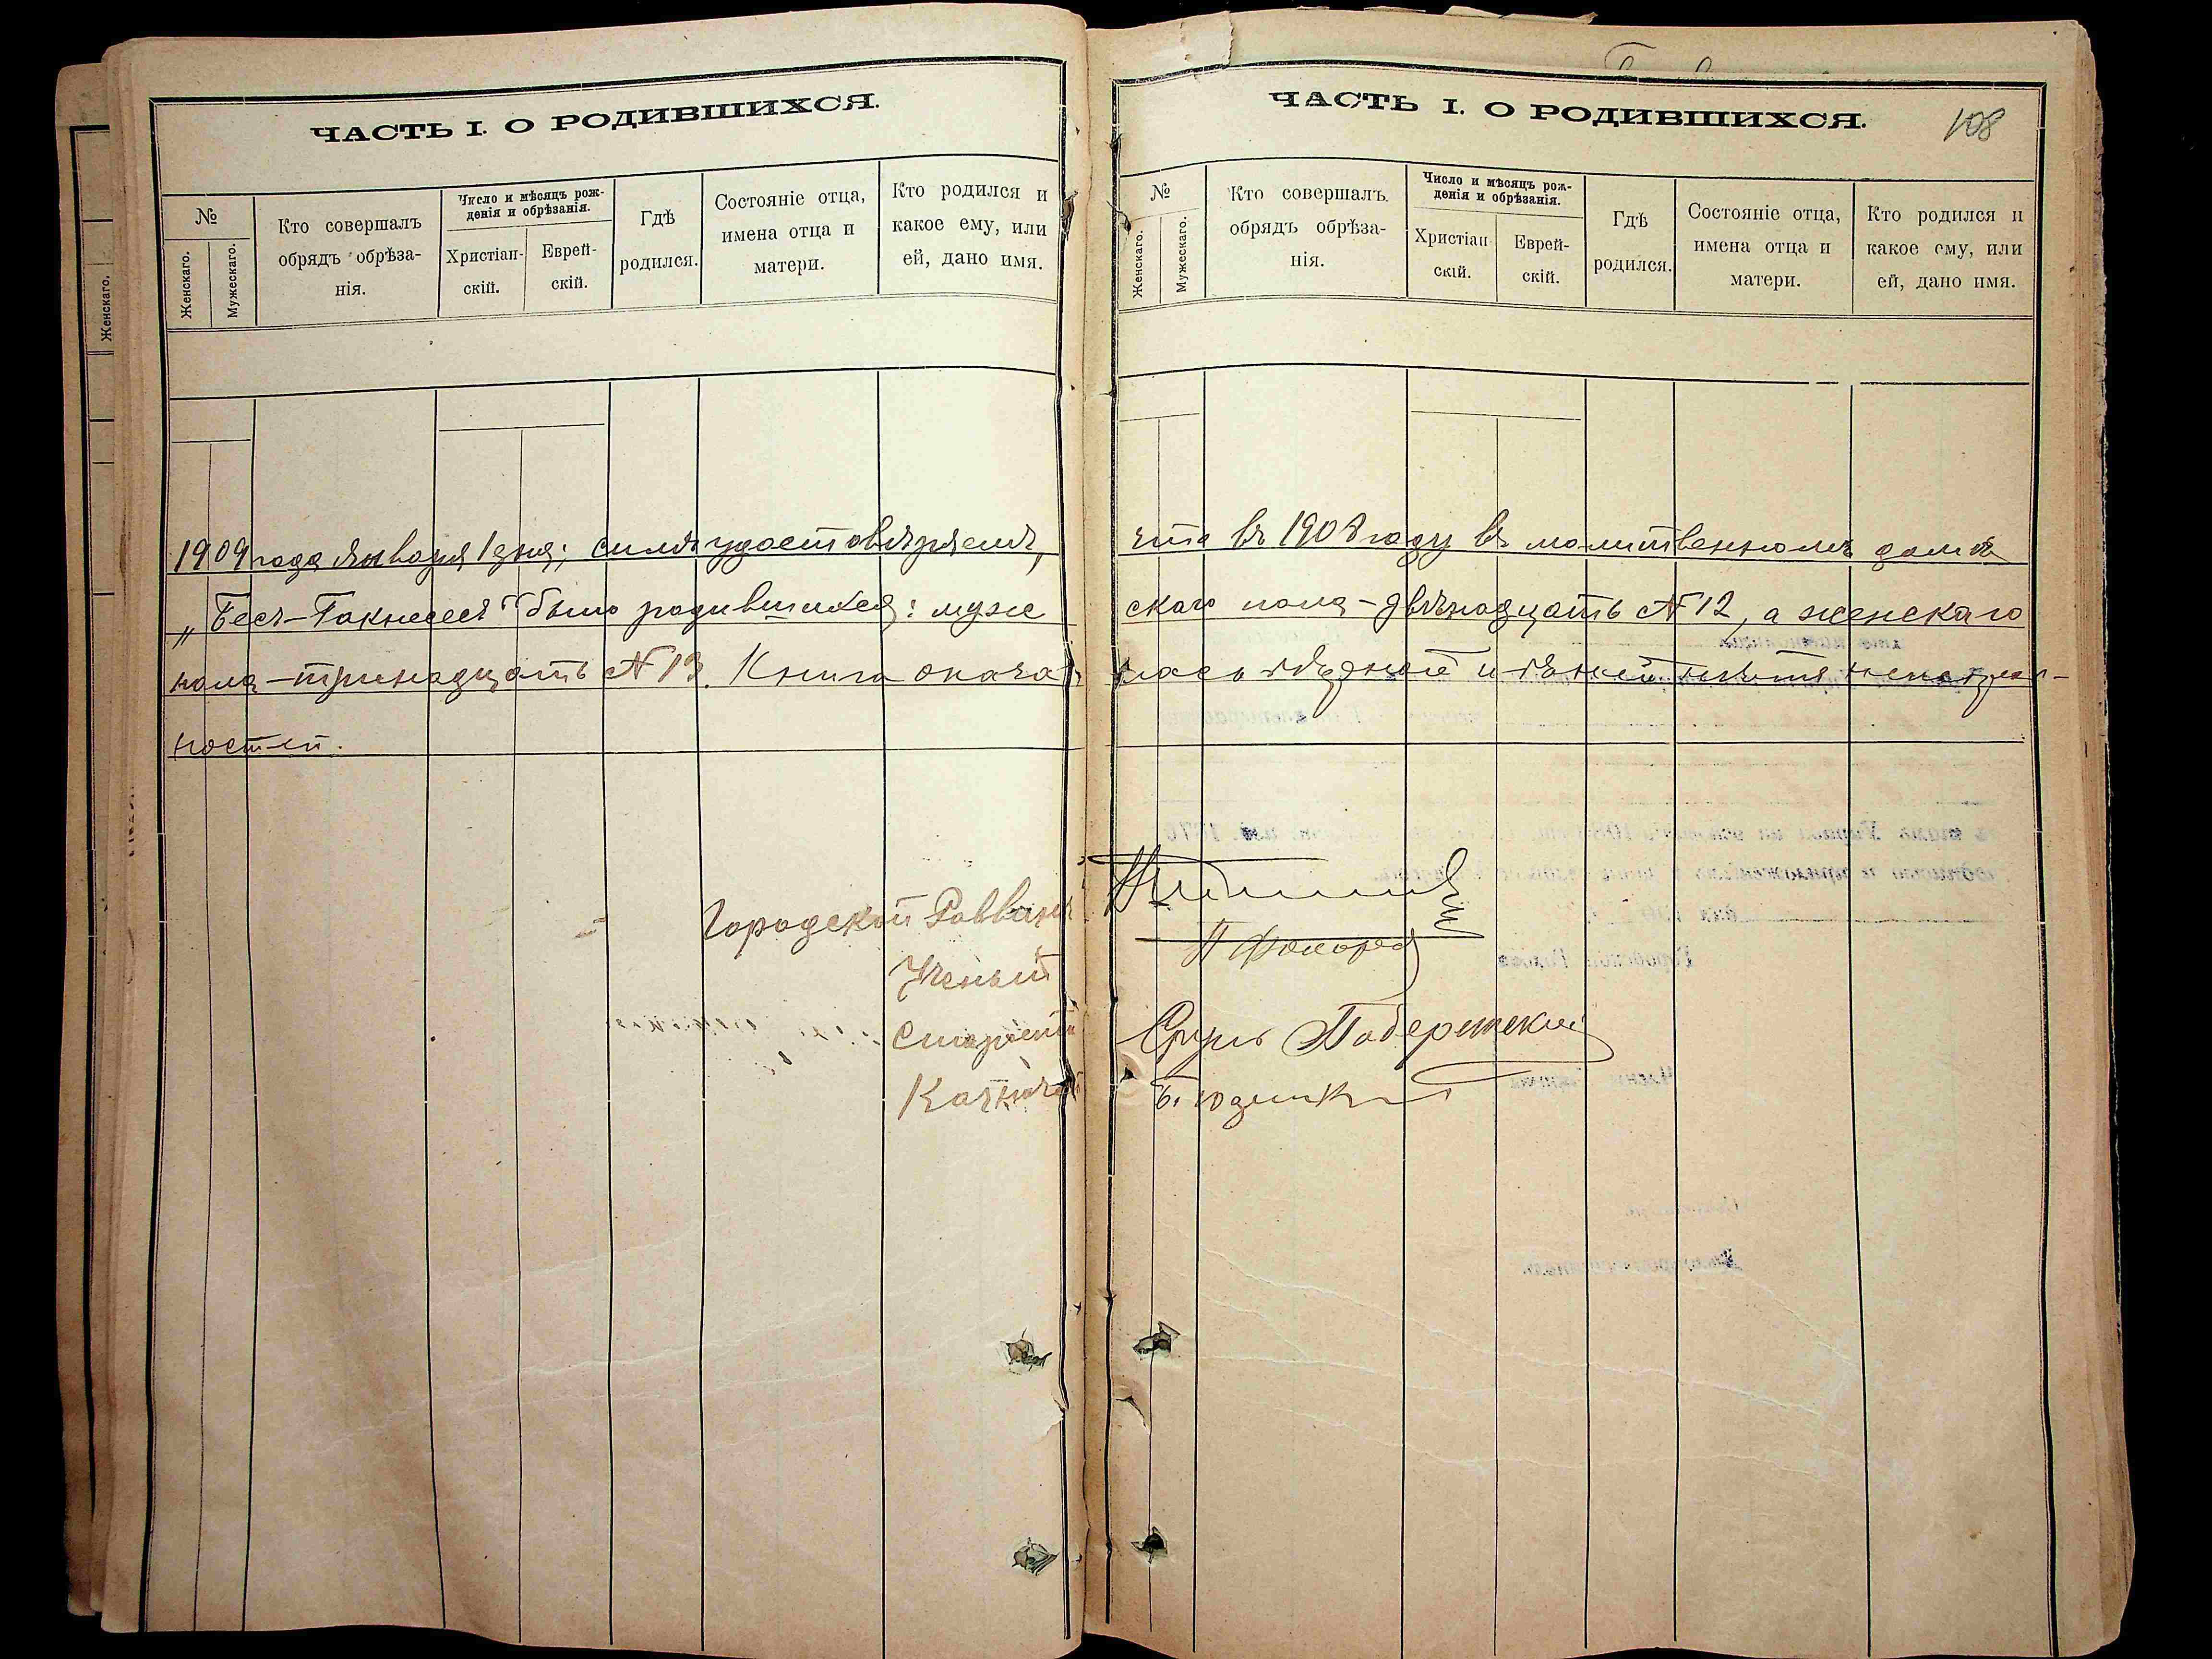 ЧАСТЬ I. О РОДИВШИХСЯ.
№
Женскаго.
Мужескаго.
Кто совершалъ
обрядъ обрѣза-
нія.
Число и мѣсяцъ рож-
денія и обрѣзанія.
Христіан-
скій.
Еврей-
скій.
Гдѣ
родился.
Состояніе отца,
имена отца и
матери.
Кто родился и
какое ему, или
ей, дано имя.
ЧАСТЬ I. О РОДИВШИХСЯ.
108
№
Женскаго.
Мужескаго.
Кто совершалъ
обрядъ обрѣза-
нія.
Число и мѣсяцъ рож-
денія и обрѣзанія.
Христіан-
скій.
Еврей-
скій.
Гдѣ
родился.
Состояніе отца,
имена отца и
матери.
Кто родился и
какое ему, или
ей, дано имя.
Женскаго.
1909 года Января 1 дня; симъ удостовѣряемъ, что въ 1908 году въ молитвенномъ домѣ
„Бесъ-Гакнесесъ" было родившихся: мужескаго пола - двѣнадцать № 12, а женскаго
пола - тринадцать № 13. Книга оказалась вѣрной и въ ней нѣтъ неисправ-
ностей.
Городской Раввинъ
Ученый
Староста
Казначей